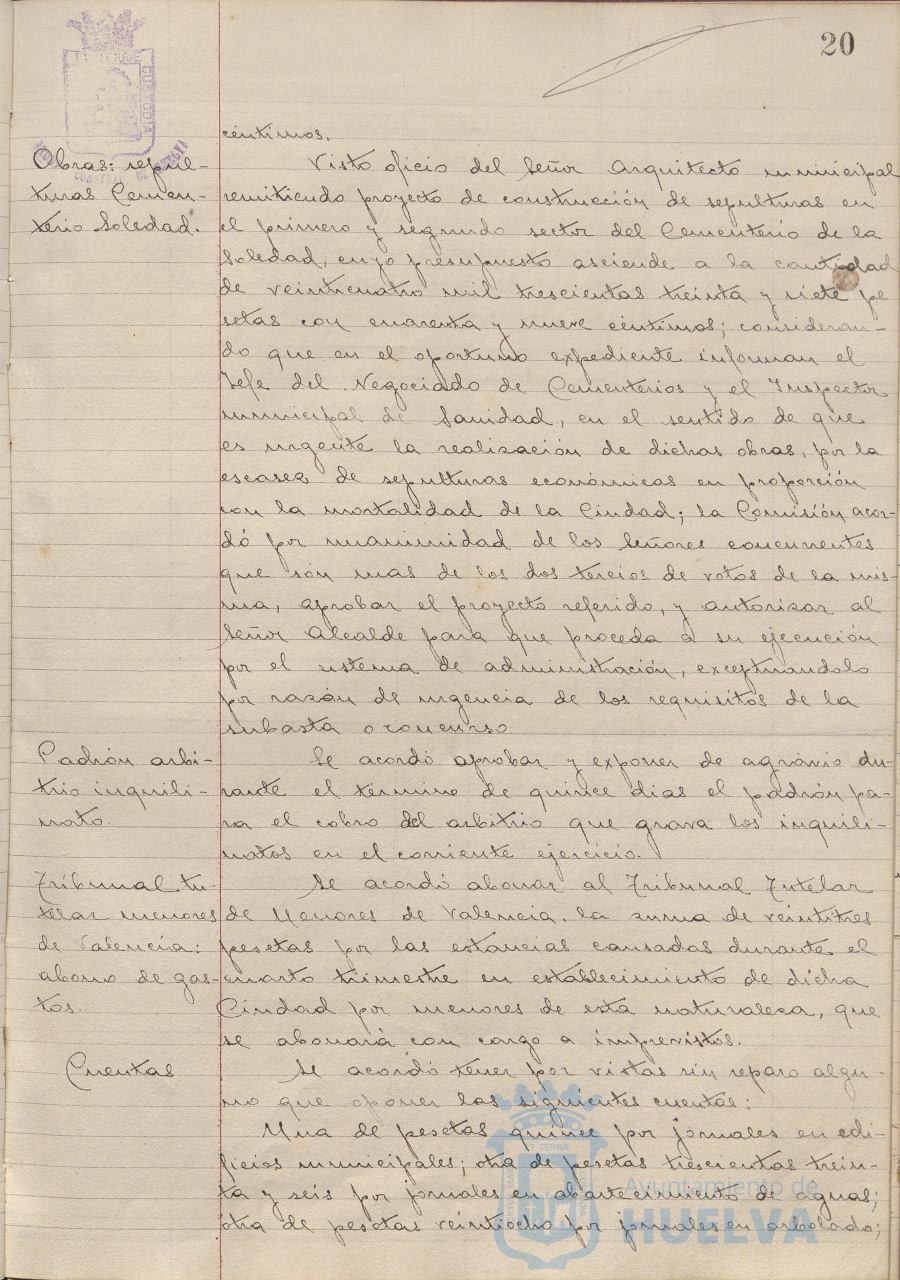 20
céntimos.
Obras: sepul-
turas Cemen-
terio Soledad.
Visto oficio del Señor Arquitecto municipal
remitiendo proyecto de construcción de sepulturas en
el primero y segundo sector del Cementerio de la
Soledad, cuyo presupuesto asciende a la cantidad
de veinticuatro mil trescientas treinta y siete pe
setas con cuarenta y nueve céntimos; consideran-
do que en el oportuno expediente informan el
Jefe del Negociado de Cementerios y el Inspector
municipal de Sanidad, en el sentido de que
es urgente la realización de dichas obras, por la
escasez de sepulturas económicas en proporción
con la mortalidad de la Ciudad; la Comisión acor-
dó por unanimidad de los Señores concurrentes
que són mas de los dos tercios de votos de la mis-
ma, aprobar el proyecto referido, y autorizar al
Señor Alcalde para que proceda a su ejecución
por el sistema de administración, exceptuandolo
por razón de urgencia de los requisitos de la
subasta o concurso
Padrón arbi-
trio inquili-
nato.
Se acordó aprobar y exponer de agravio du-
rante el término de quince dias el padrón pa-
ra el cobro del arbitrio que grava los inquili-
natos en el corriente ejercicio.
Tribunal tu-
telar menores
de Valencia:
abono de gas-
tos.
Se acordó abonar al Tribunal Tutelar
de Menores de Valencia, la suma de veintitres
pesetas por las estancias causadas durante el
cuarto trimestre en establecimiento de dicha
Ciudad por menores de esta naturaleza, que
se abonará con cargo a imprevistos.
Cuentas
Se acordó tener por vistas sin reparo algu-
no que oponer las siguientes cuentas:
Una de pesetas quince por jornales en edi-
ficios municipales; otra de pesetas trescientas trein-
ta y seis por jornales en abastecimiento de aguas;
otra de pesetas veintiocho por jornales en arbolado;
Ayuntamiento de
HUELVA